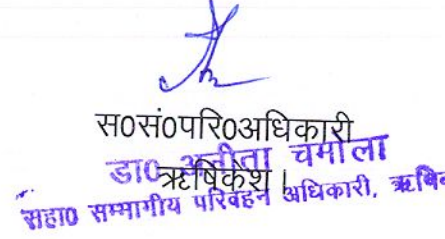 स0सं0परि0अधिकारी
डा0 अनीता चमोला
ऋषिकेश।
सहा0 सम्भागीय परिवहन अधिकारी,